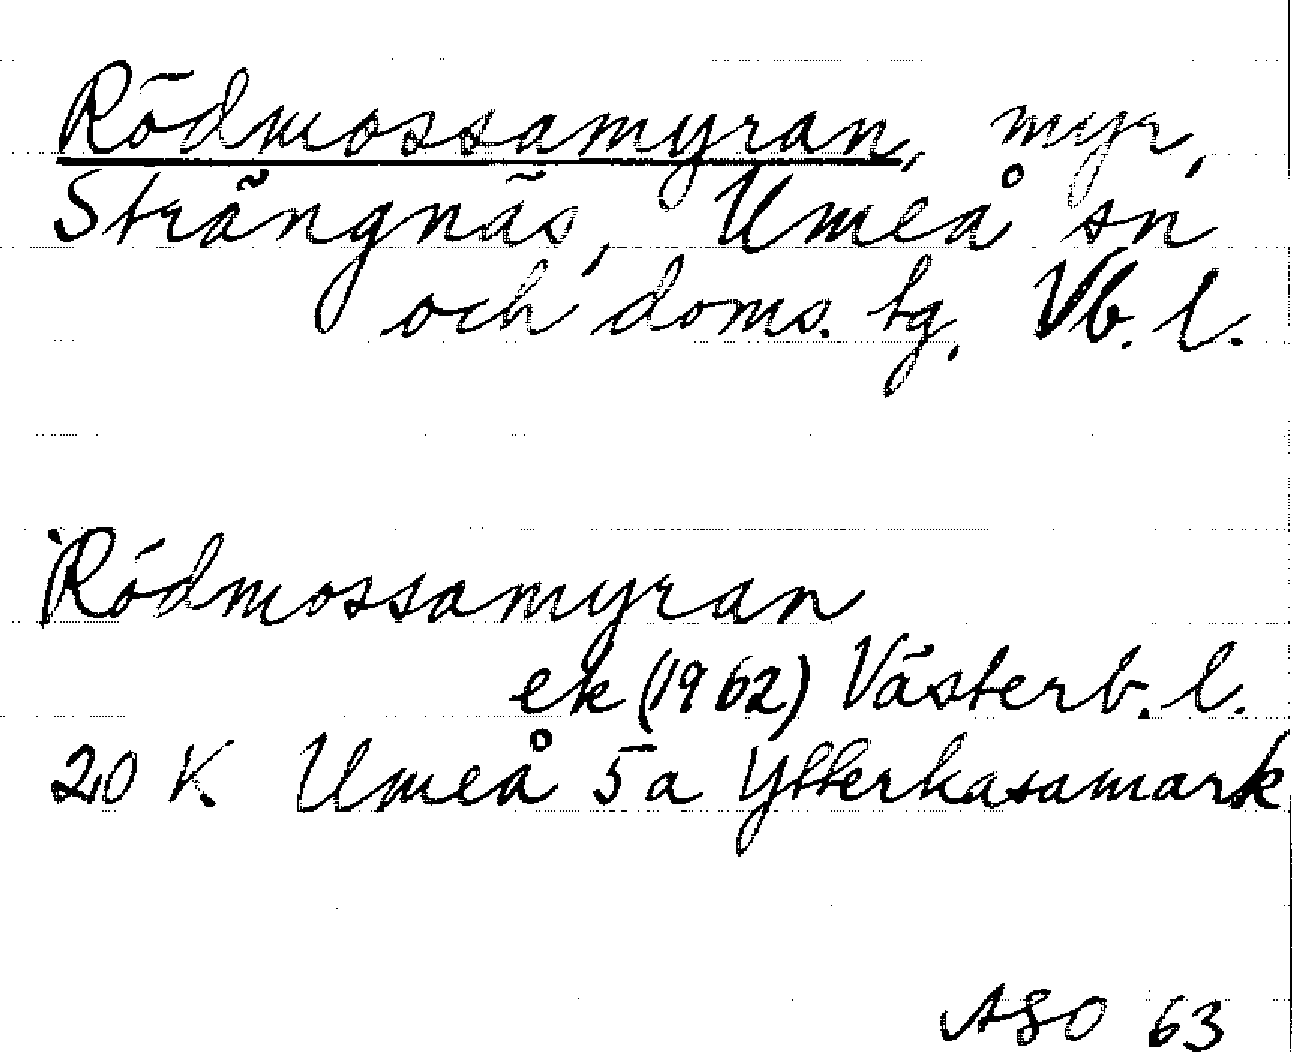 Rödmossamyran, myr,
Strängnäs, Umeå sn
och doms. tg, Vb. l.
Rödmossamyran
ek (1962) Västerb. l.
20 K. Umeå 5a Ytterkasamark
ASO 63